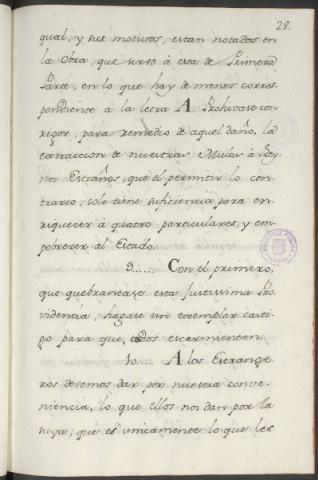 28.
qual, y sus motivos, estan notados en
la Obra, que sirve à esta de Primera
Parte, en lo que hay de menos corres
pondiente à la letra A. Prohivase con
rigor, para remedio de aquel daño, la
extraccion de nuestras Mulas à Rey-
nos Estraños, que el permitir lo con-
trario, solo tiene suficiencia para en-
riquecer à quatro particulares, y em-
pobrecer al Estado.
9..... Con el primero,
que quebrantase esta Justissima Pro
videncia, hagase un exemplar casti-
go para que, todos escarmienten.
10.... A los Estrange
ros devemos dar por nuestra conve-
niencia, lo que ellos nos dan por la
suya, que es unicamente lo que les